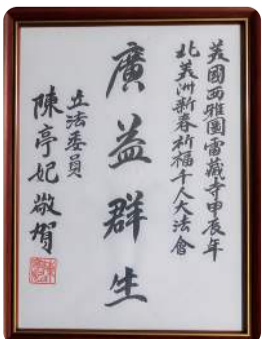 美國西雅圖雷藏寺甲辰年
北美洲新春祈福千人大法會
廣益群生
立法委員
陳亭妃敬賀